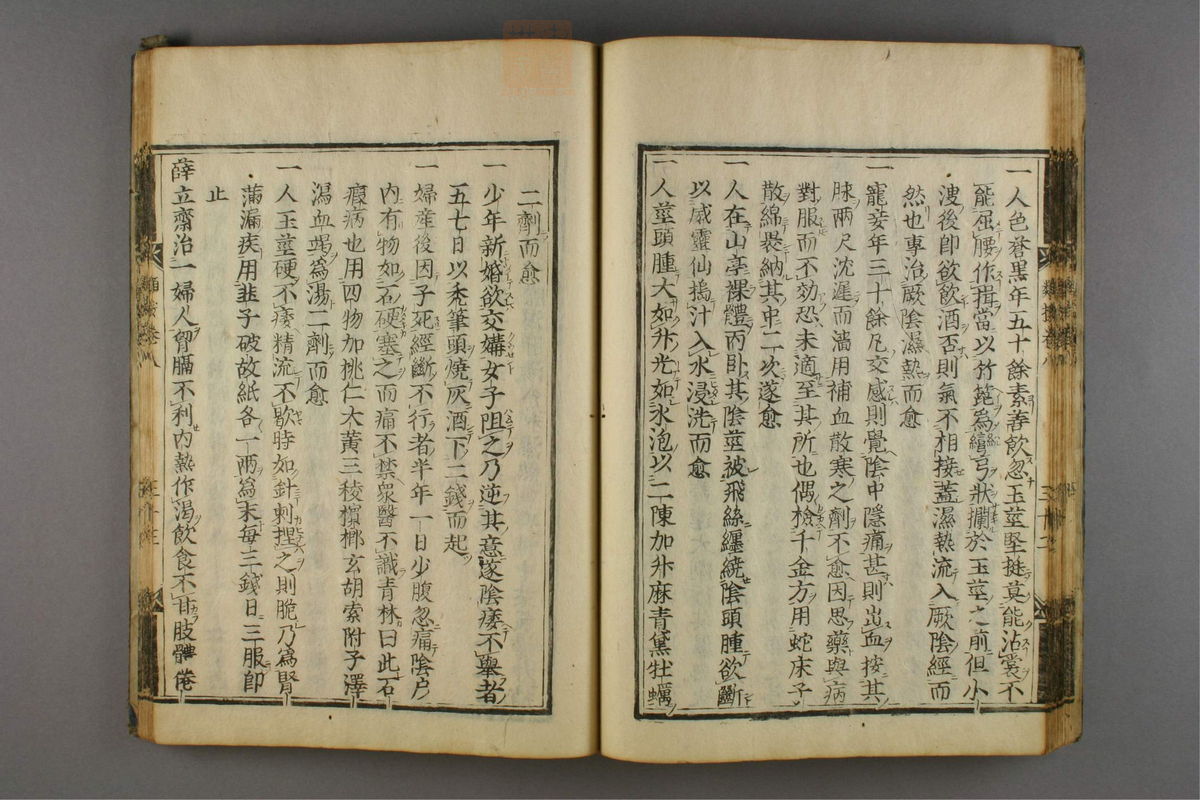 一人色蒼黒年五十餘素善飲忽玉莖堅挺莫能沾裳不
能屈腰作揖當以竹篦為彎弓狀攔於玉莖之前但小
溲後即飲飲酒否則氣不相接蓋濕熱流入厥陰經而
然也專治厥陰濕熱而愈
一寵妾年三十餘凡交感則覺陰中隱痛甚則出血按其
脉兩尺沈遲而濇用補血散寒之劑不愈因思藥與病
對服而不効恐未適至其所也偶檢千金方用蛇床子
散綿裹納其中二次遂愈
一人在山亭裸體而卧其陰莖被飛絲纏繞陰頭腫欲斷
以威靈仙搗汁入水浸洗而愈
一人莖頭腫大如升光如水泡以二陳加升麻青黛牡蠣
二劑而愈
一少年新婚欲交媾女子阻之乃逆其意遂陰痿不舉者
五七日以禿筆頭燒灰酒下二錢而起
一婦產後因子死經斷不行者半年一日少腹忽痛陰戶
内有物如石硬塞之而痛不禁衆醫不識青林曰此石
瘕病也用四物加桃仁大黄三稜檳榔玄胡索附子澤
瀉血竭為湯二劑而愈
一人玉莖硬不痿精流不歇時如針刺捏之則脆乃為腎
滿漏疾用韭子破故紙各一兩為末每三錢日三服即
止
薛立齋治一婦人胷膈不利内熱作渴飲食不甘肢體倦